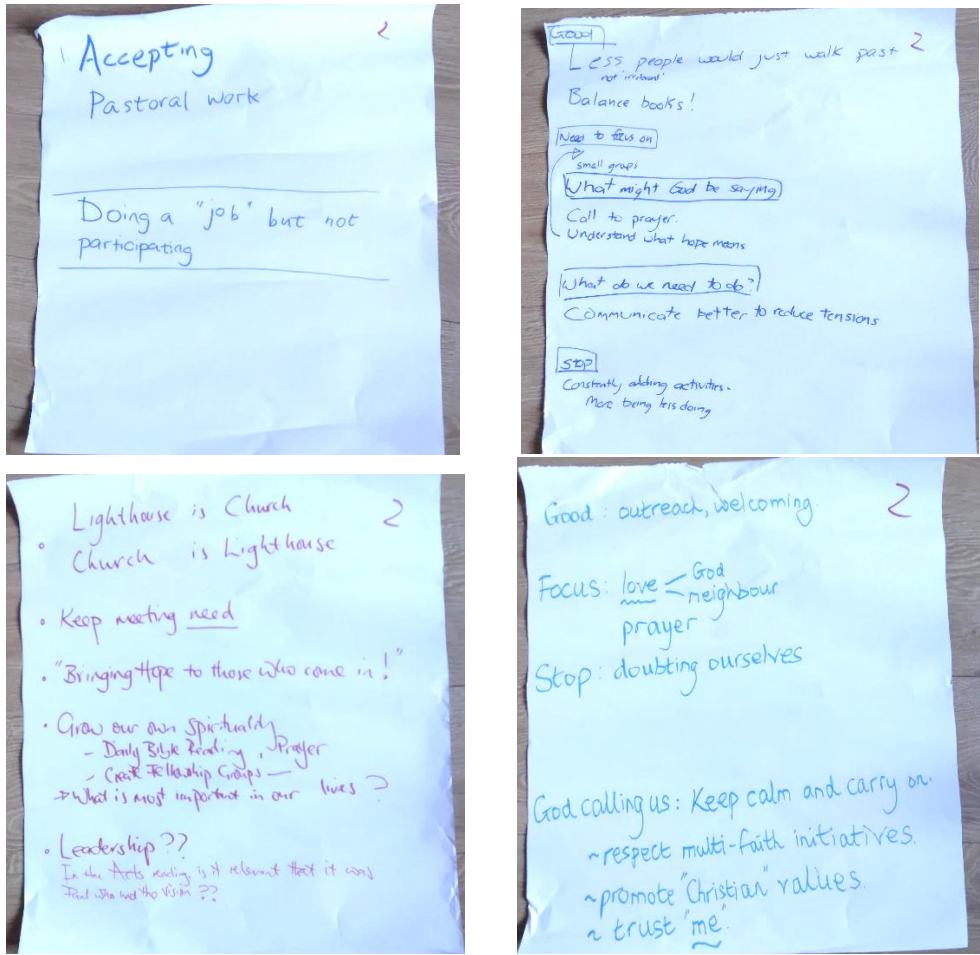 2
Accepting
Pastoral work
Doing a "job" but not
participating
2
Good
Less people would just walk past
not 'irrelevant'
Balance books!
Need to focus on
small groups
What might God be saying
Call to prayer.
Understand what hope means
What do we need to do?
Communicate better to reduce tensions
Stop
Constantly adding activities.
More being less doing
2
Lighthouse is Church
• Church is Lighthouse
• Keep meeting need
• "Bringing Hope to those who come in!"
• Grow our own spirituality
- Daily Bible Reading, Prayer
- Create Fellowship Groups -
→ What is most important in our lives?
• Leadership??
In the Acts reading is it relevant that it was
Paul who had the vision??
2
Good: outreach, welcoming.
Focus: love God
neighbour
prayer
Stop: doubting ourselves
God calling us: Keep calm and carry on.
~ respect multi-faith initiatives.
~ promote "Christian" values.
~ trust "me".